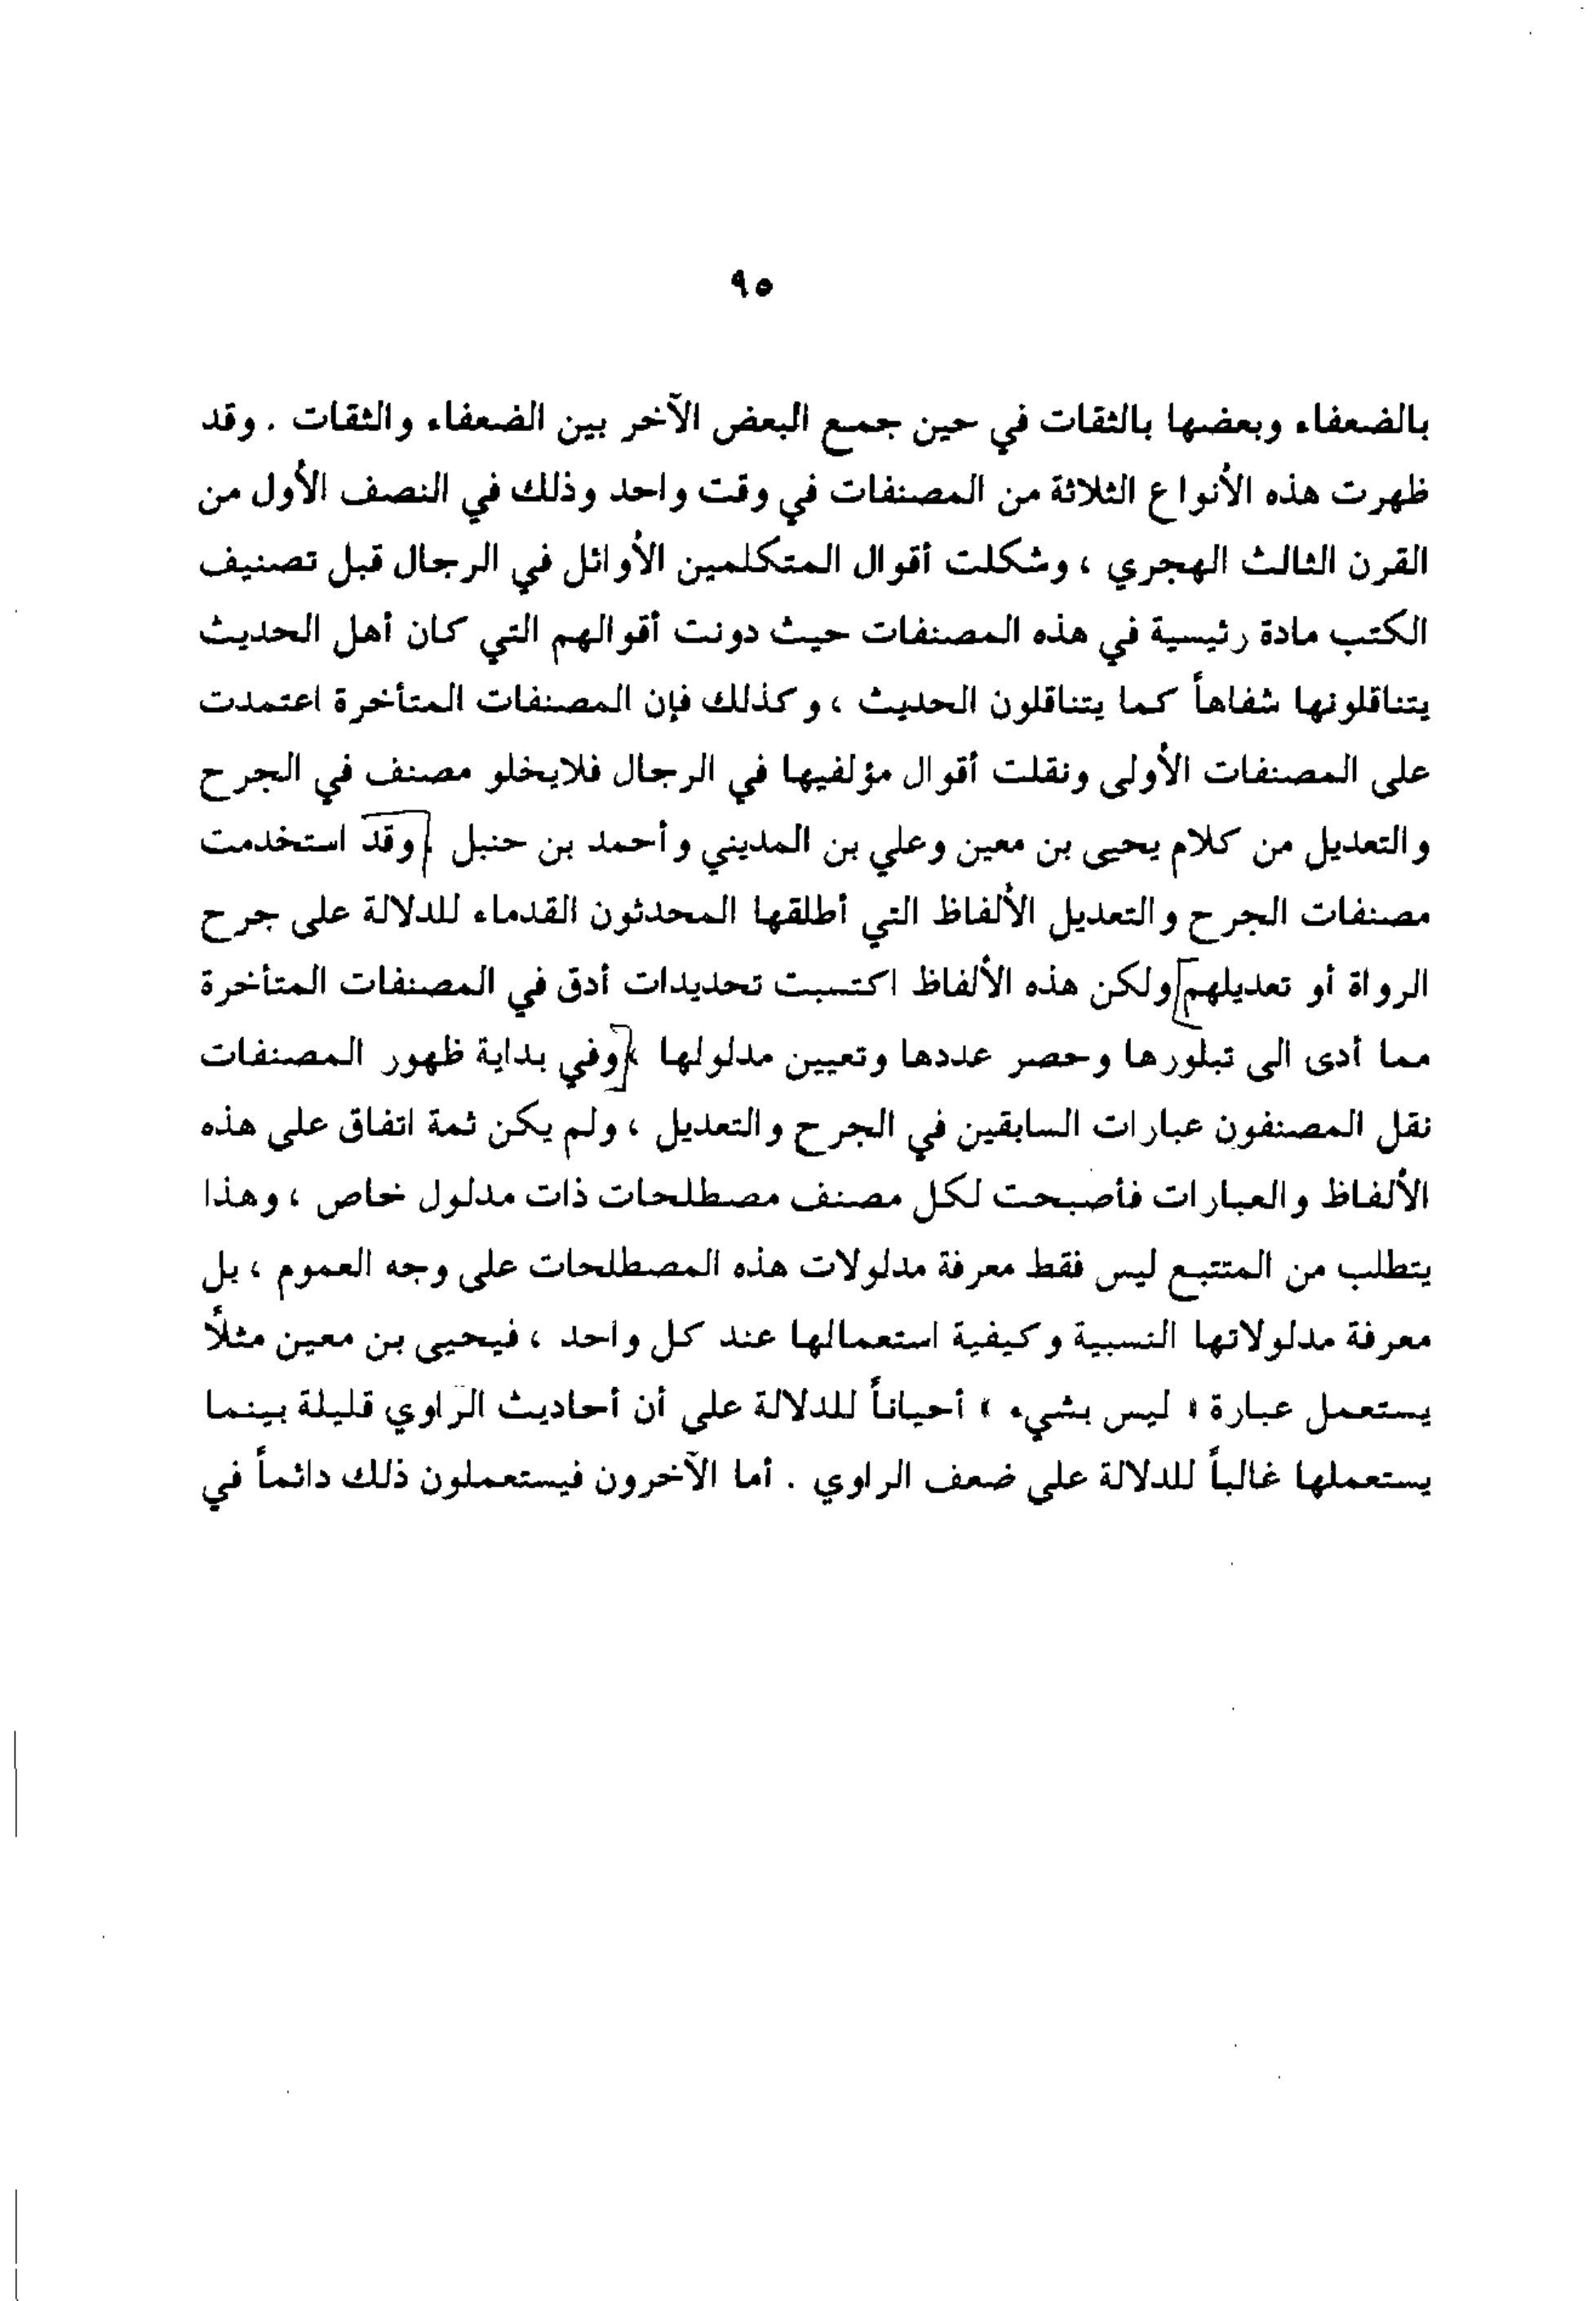 ٩٥
بالضعفاء وبعضها بالثقات في حين جمع البعض الآخر بين الضعفاء والثقات . وقد
ظهرت هذه الأنواع الثلاثة من المصنفات في وقت واحد وذلك في النصف الأول من
القرن الثالث الهجري ، وشكلت أقوال المتكلمين الأوائل في الرجال قبل تصنيف
الكتب مادة رئيسية في هذه المصنفات حيث دونت أقوالهم التي كان أهل الحديث
يتناقلونها شفاهاً كما يتناقلون الحديث ، وكذلك فإن المصنفات المتأخرة اعتمدت
على المصنفات الأولى ونقلت أقوال مؤلفيها في الرجال فلايخلو مصنف في الجرح
والتعديل من كلام يحيى بن معين وعلي بن المديني وأحمد بن حنبل . [وقد استخدمت
مصنفات الجرح والتعديل الألفاظ التي أطلقها المحدثون القدماء للدلالة على جرح
الرواة أو تعديلهم [ولكن هذه الألفاظ اكتسبت تحديدات أدق في المصنفات المتأخرة
مما أدى الى تبلورها وحصر عددها وتعيين مدلولها .] وفي بداية ظهور المصنفات
نقل المصنفون عبارات السابقين في الجرح والتعديل ، ولم يكن ثمة اتفاق على هذه
الألفاظ والعبارات فأصبحت لكل مصنف مصطلحات ذات مدلول خاص ، وهذا
يتطلب من المتتبع ليس فقط معرفة مدلولات هذه المصطلحات على وجه العموم ، بل
معرفة مدلولاتها النسبية وكيفية استعمالها عند كل واحد ، فيحيى بن معين مثلاً
يستعمل عبارة « ليس بشيء » أحياناً للدلالة على أن أحاديث الراوي قليلة بينما
يستعملها غالباً للدلالة على ضعف الراوي . أما الآخرون فيستعملون ذلك دائماً في